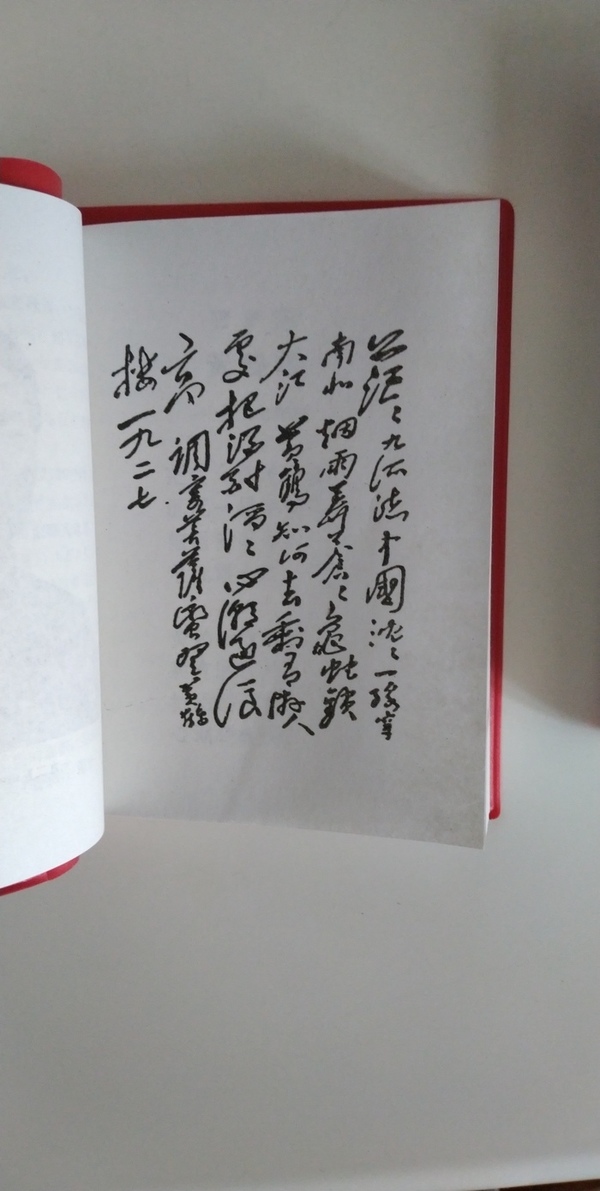 茫〻九派流中國沈〻一綫穿
南北 烟雨莽蒼〻龜蛇鎖
大江 黄鶴知何去剩有游人
處把酒酹滔〻心潮逐浪
高 調寄菩薩蠻 登黄鶴
樓 一九二七